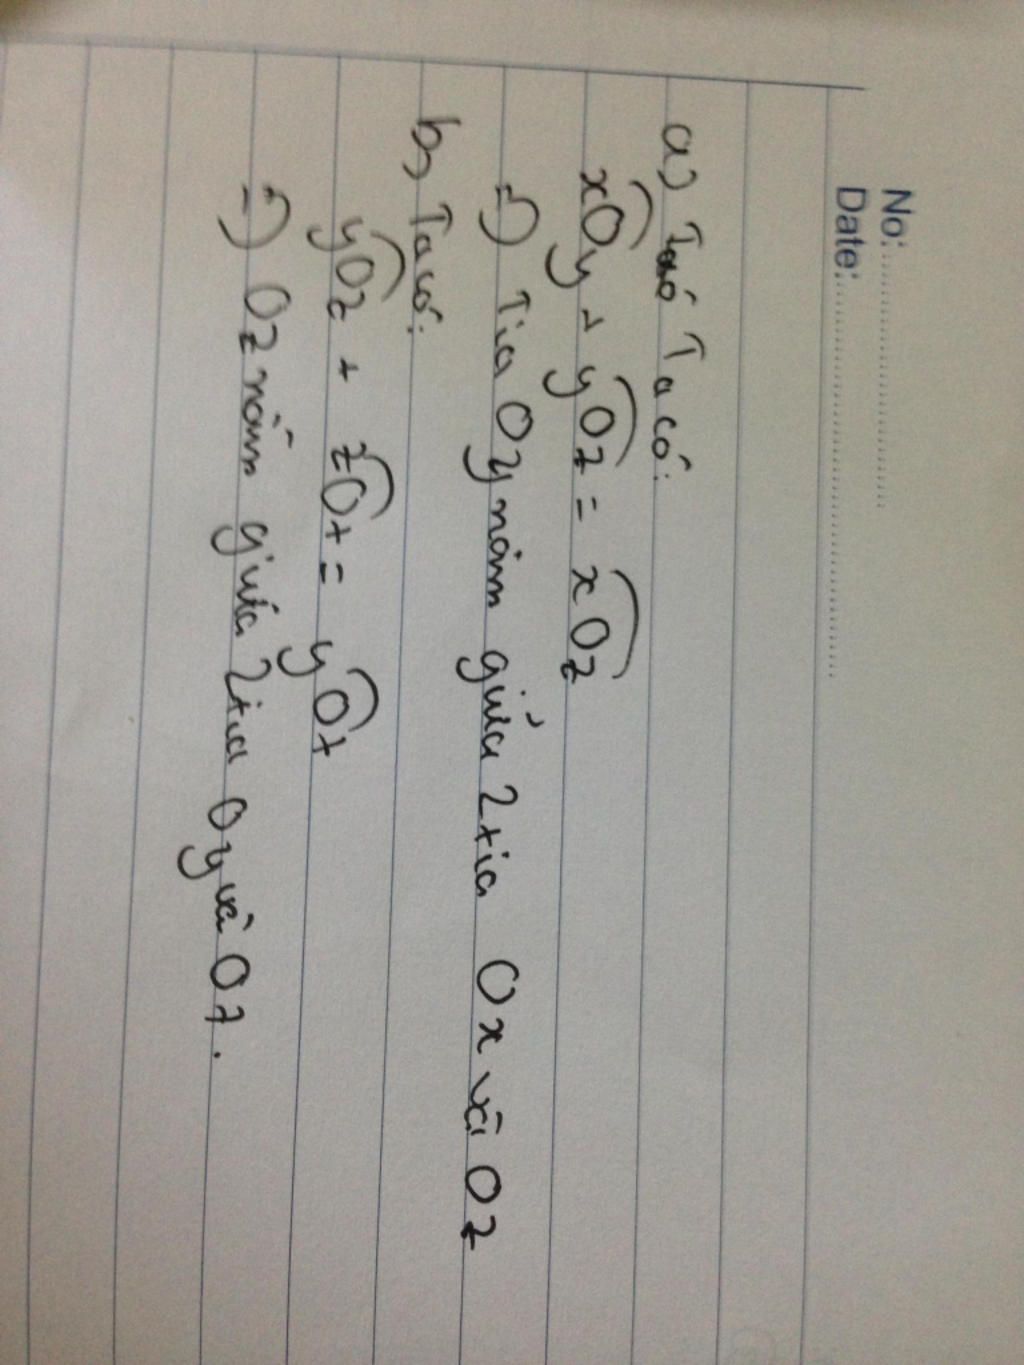 No:
Date:
a) Ta có:
xOy + yOz = xOz
=) Tia Oy nằm giữa 2 tia Ox và Oz
b) Ta có:
yOz + zOt = yOt
=) Oz nằm giữa 2 tia Oy và Ot.